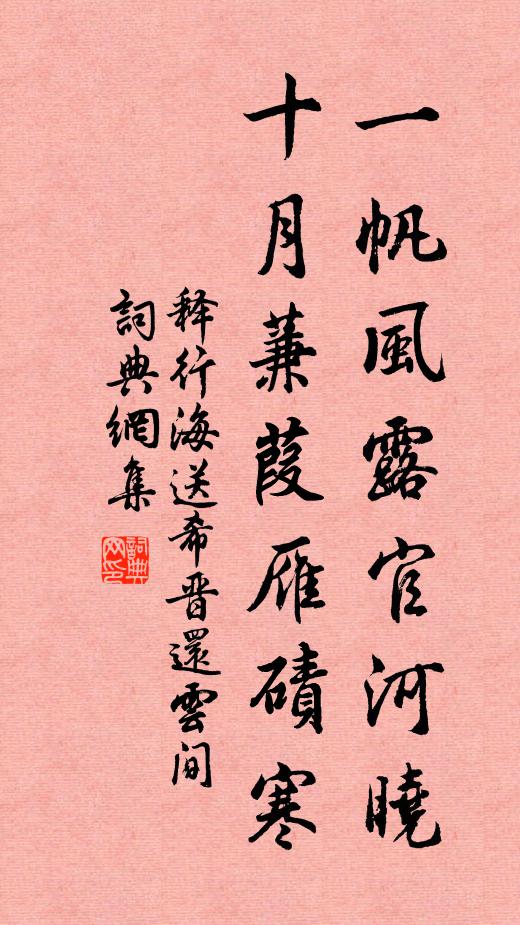 一帆風露官河曉
十月蒹葭雁磧寒
释行海送希晋還雲间
詞典網集
詞典网印